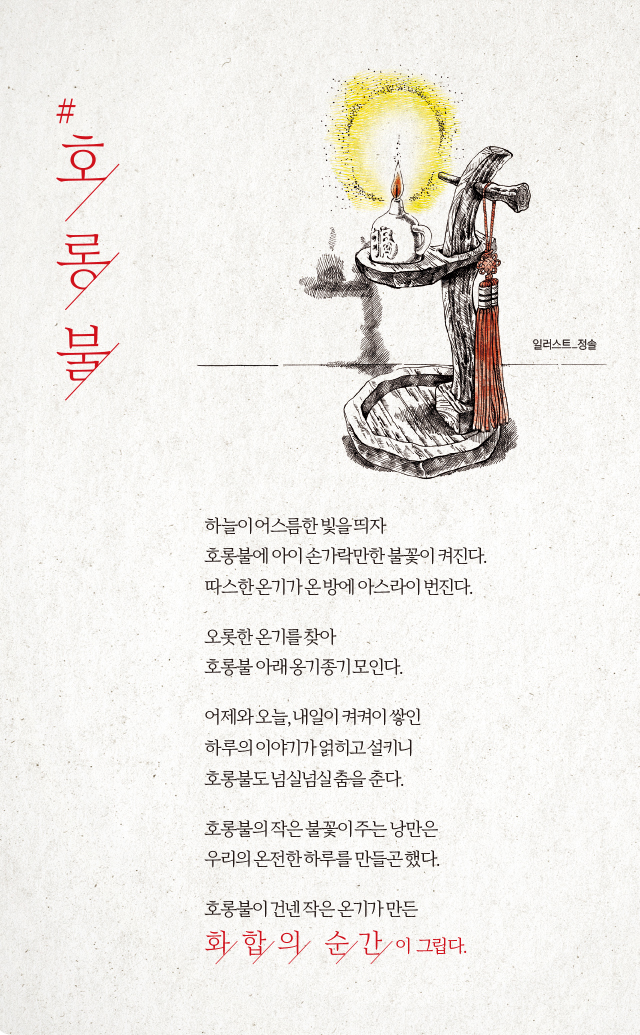 #호롱불
일러스트_정솔
하늘이 어스름한 빛을 띄자
호롱불에 아이 손가락만한 불꽃이 켜진다.
따스한 온기가 온 방에 아스라이 번진다.
오롯한 온기를 찾아
호롱불 아래 옹기종기 모인다.
어제와 오늘, 내일이 켜켜이 쌓인
하루의 이야기가 얽히고 설키니
호롱불도 넘실넘실 춤을 춘다.
호롱불의 작은 불꽃이 주는 낭만은
우리의 온전한 하루를 만들곤 했다.
호롱불이 건넨 작은 온기가 만든
화합의 순간이 그립다.